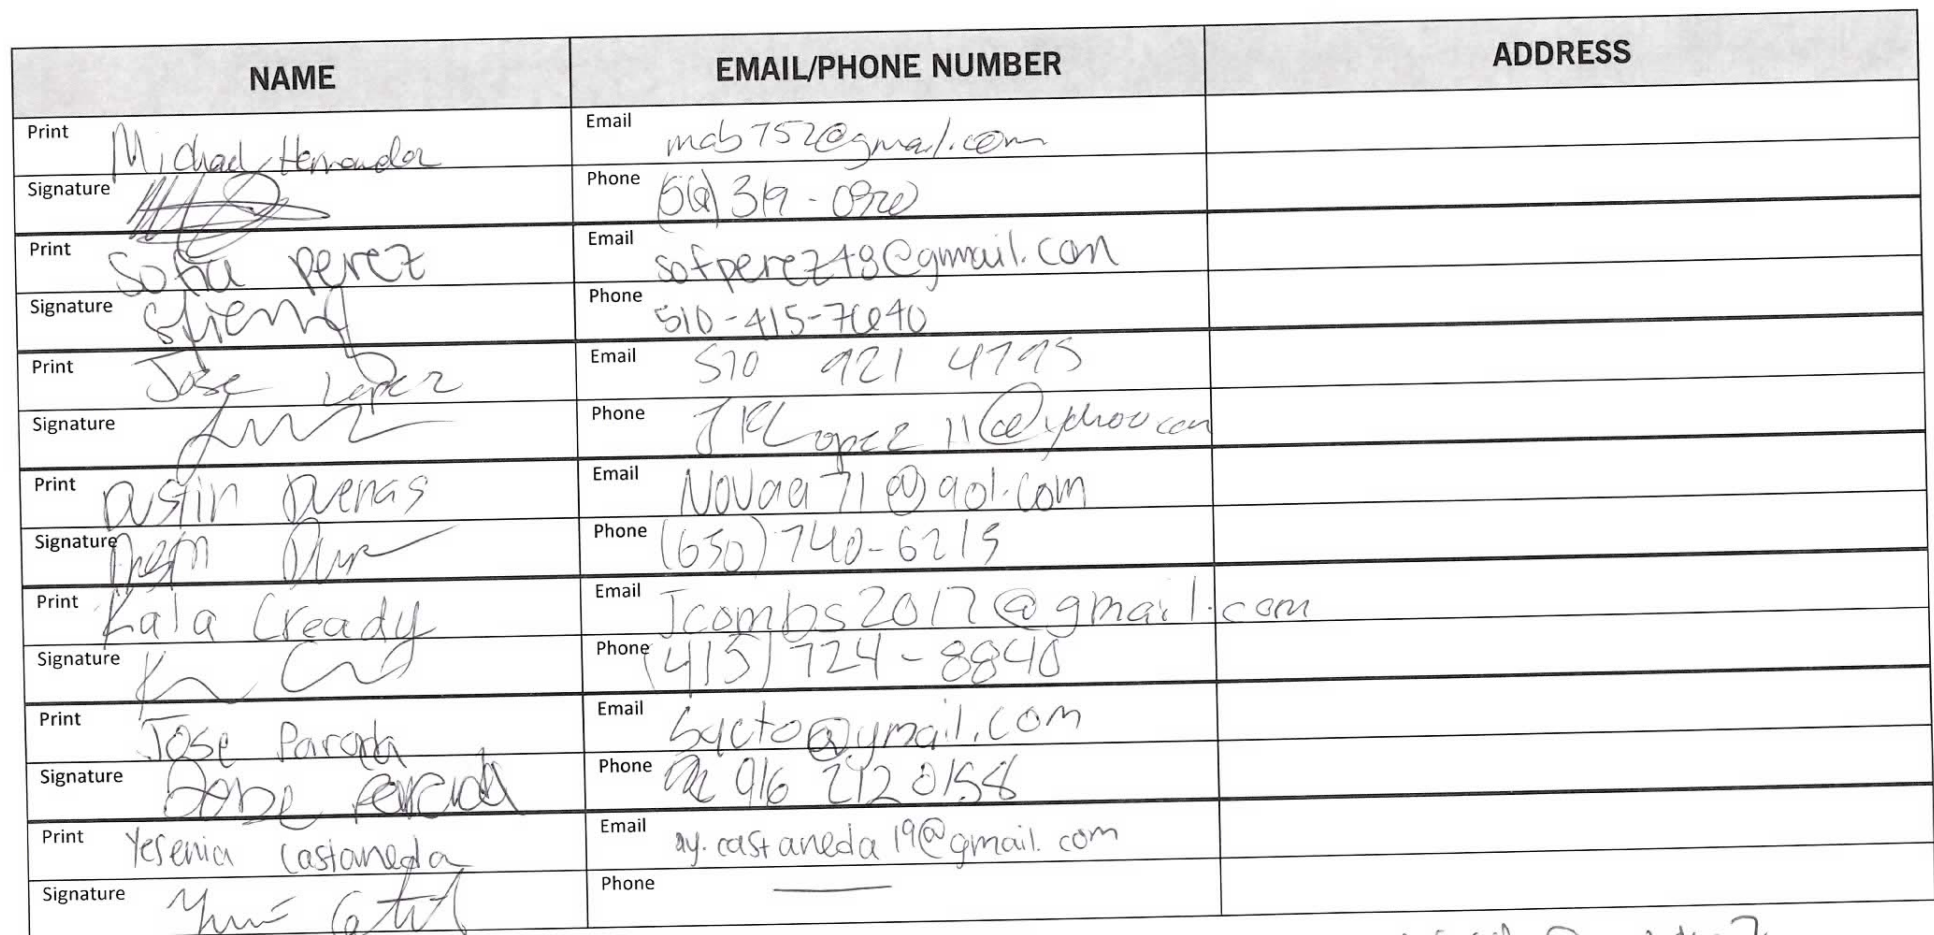 NAME EMAIL/PHONE NUMBER ADDRESS
Print Michael Hernandez Email mcb752@gmail.com
Signature Phone (510) 319-0920
Print Sofia Perez Email sofperez48@gmail.com
Signature Phone 510-415-7640
Print Jose Lopez Email 510 921 4795
Signature Phone JRLopez11@yahoo com
Print Dustin Duenas Email Novaa71@aol.com
Signature Phone (650) 740-6215
Print Kala Cready Email Jcombs2017@gmail.com
Signature Phone (415) 724-8840
Print Jose Parada Email Sacto@ymail.com
Signature Jose Parada Phone 916 212 0158
Print Yesenia Castaneda Email ay.castaneda19@gmail.com
Signature Phone